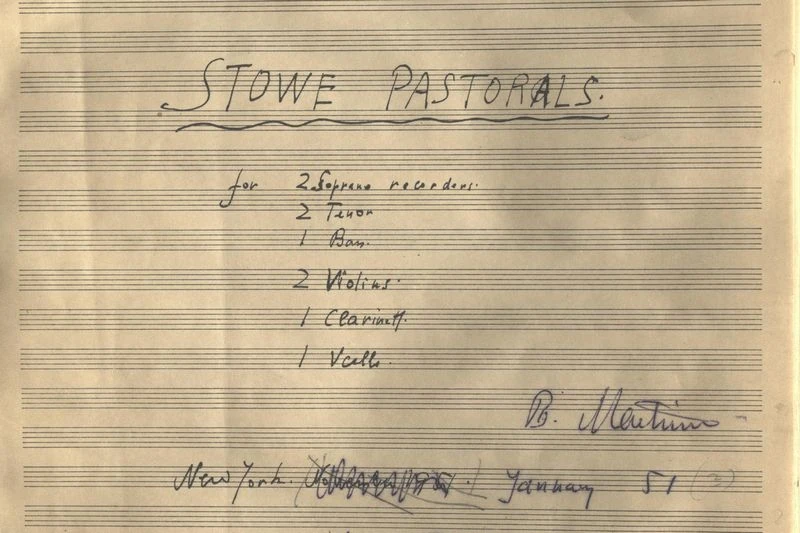 STOWE PASTORALS.
for 2 Soprano recorders.
2 Tenor
1 Bass.
2 Violins.
1 Clarinett.
1 Vcello.
B. Martinů
New York. January 51 (?)